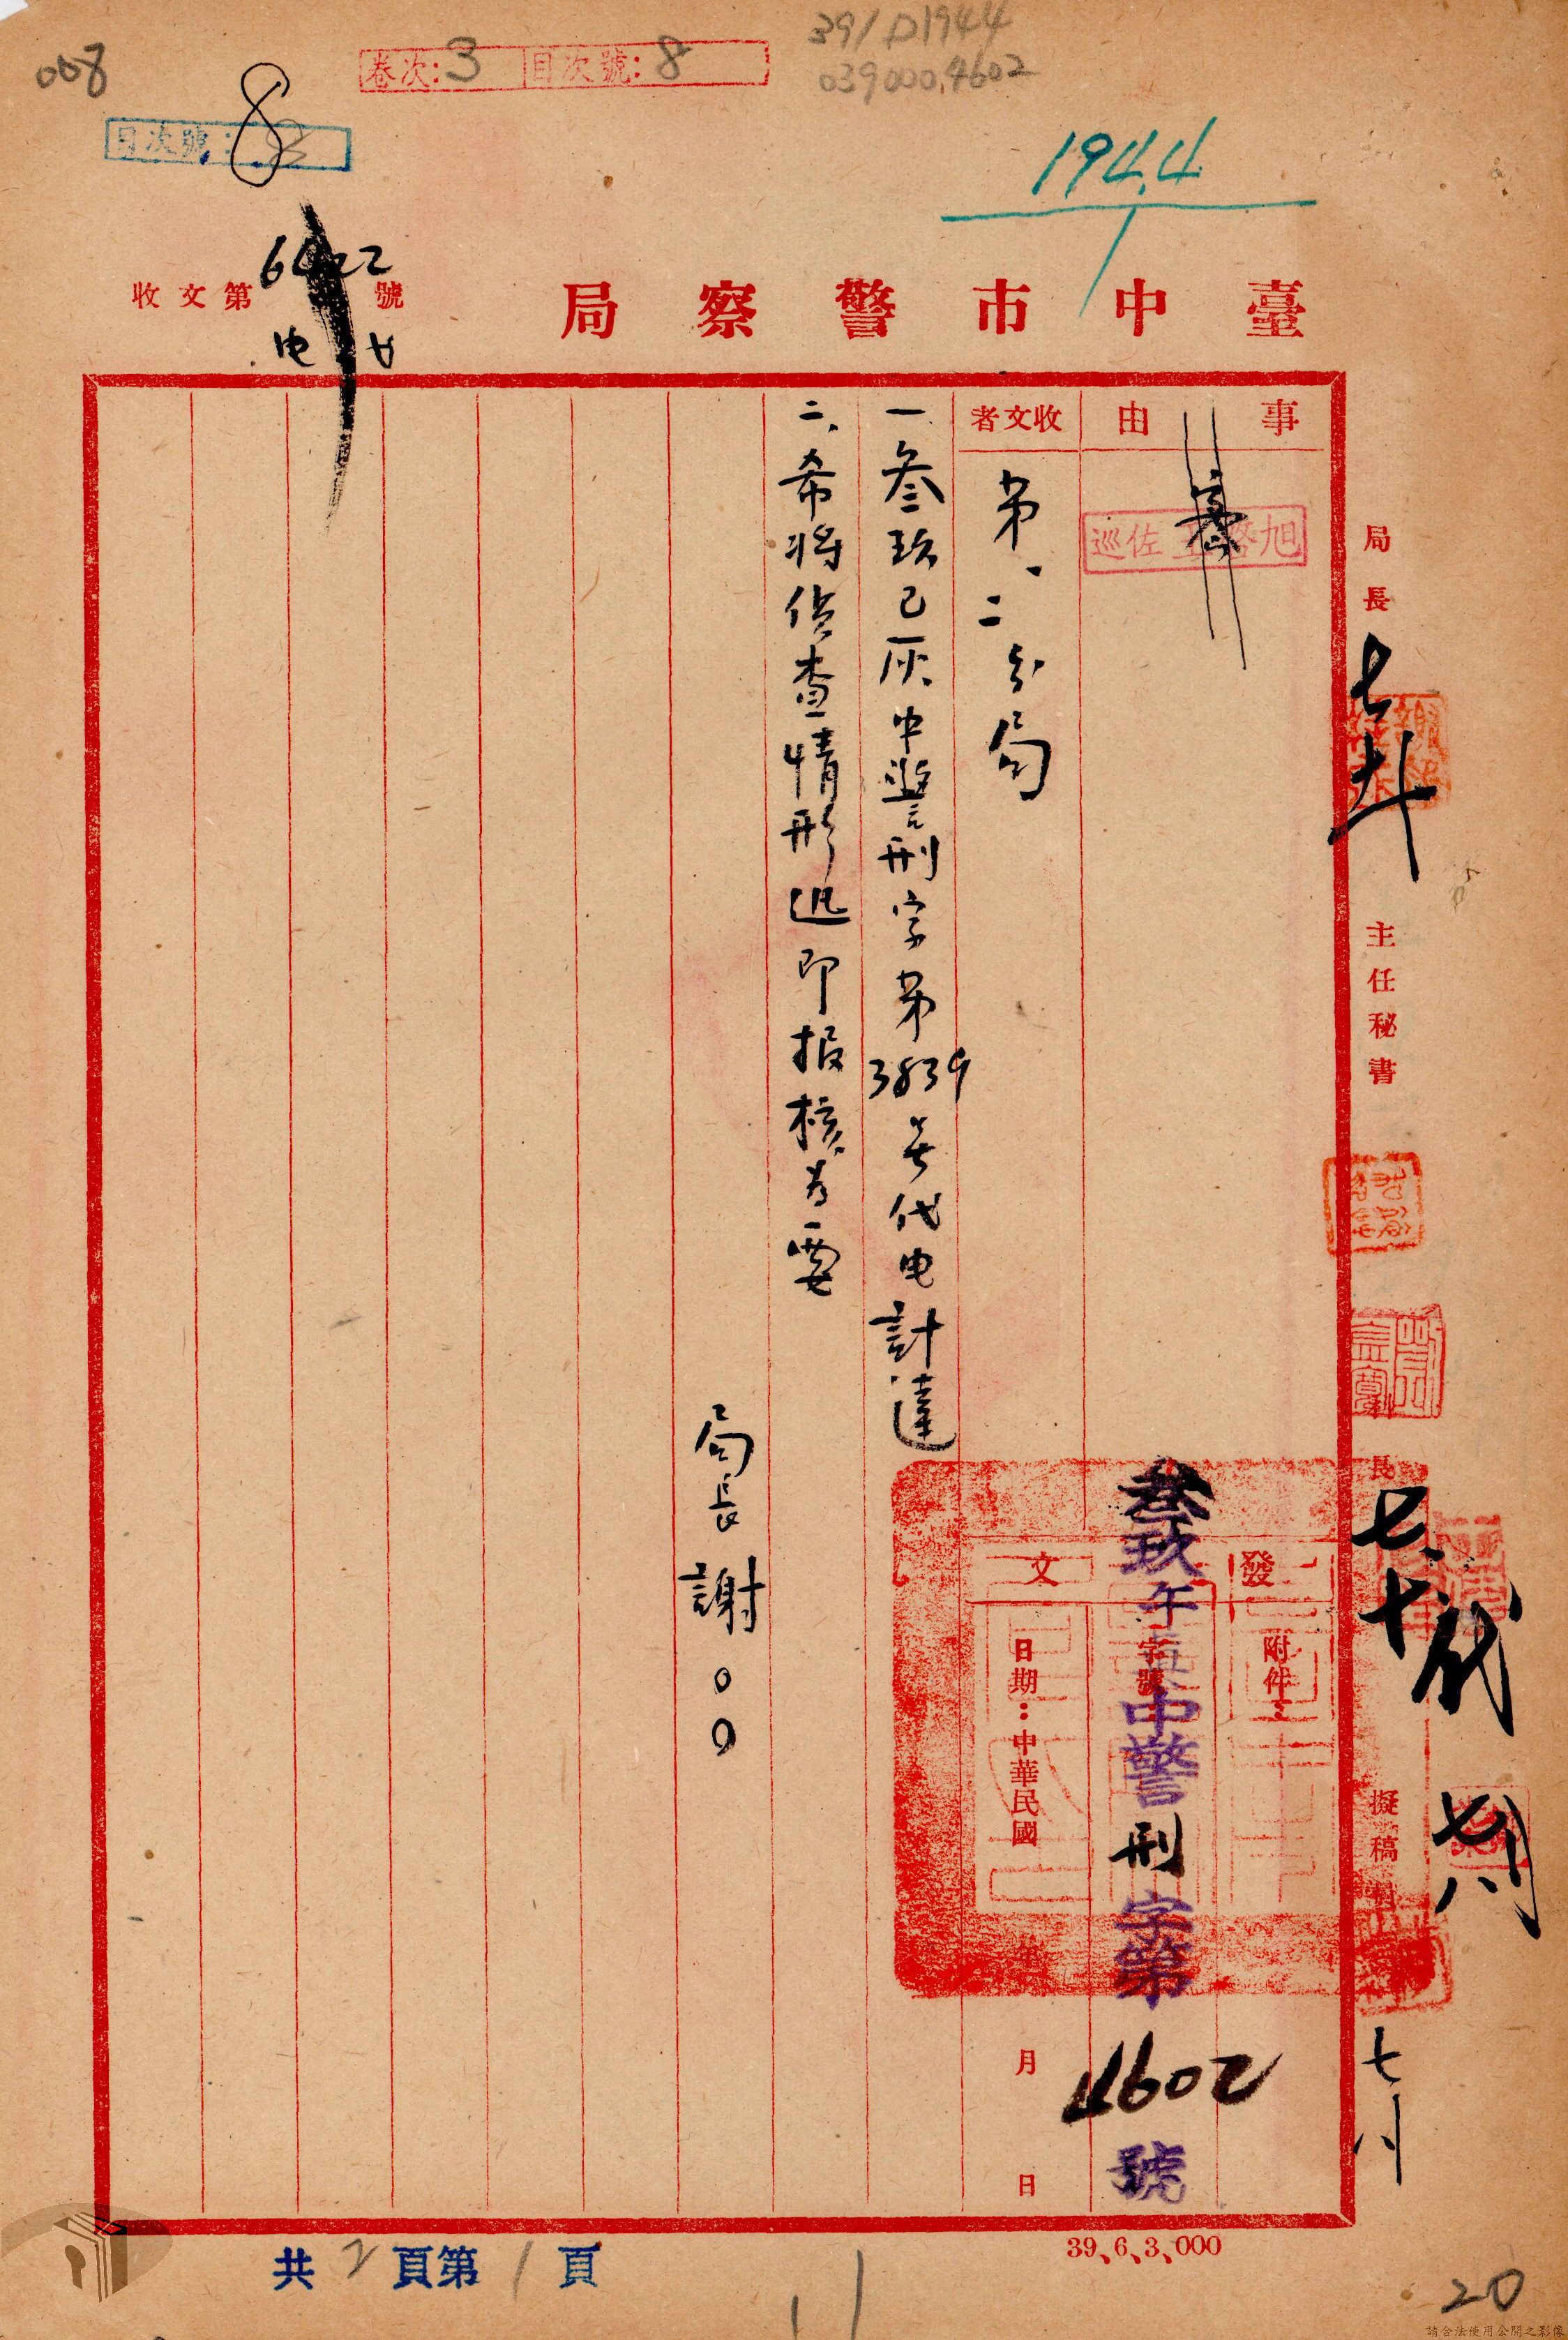 008
卷次:3 目次號:8
39/D1944
039000.4602
目次號: 8
1944
收文第6422號
臺中市警察局
事由
密
收文者
第一、二分局
一、叁玖巳灰中警刑字第3839号代电計達
二、希將偵查情形迅即报核为要
局長謝〇〇
發文
附件:
字號
叁玖午 中警刑字第4602號
日期:中華民國 年 月 日
局長
主任秘書
長
擬稿
39、6、3、000
共2頁第1頁
20
請合法使用公開之影像